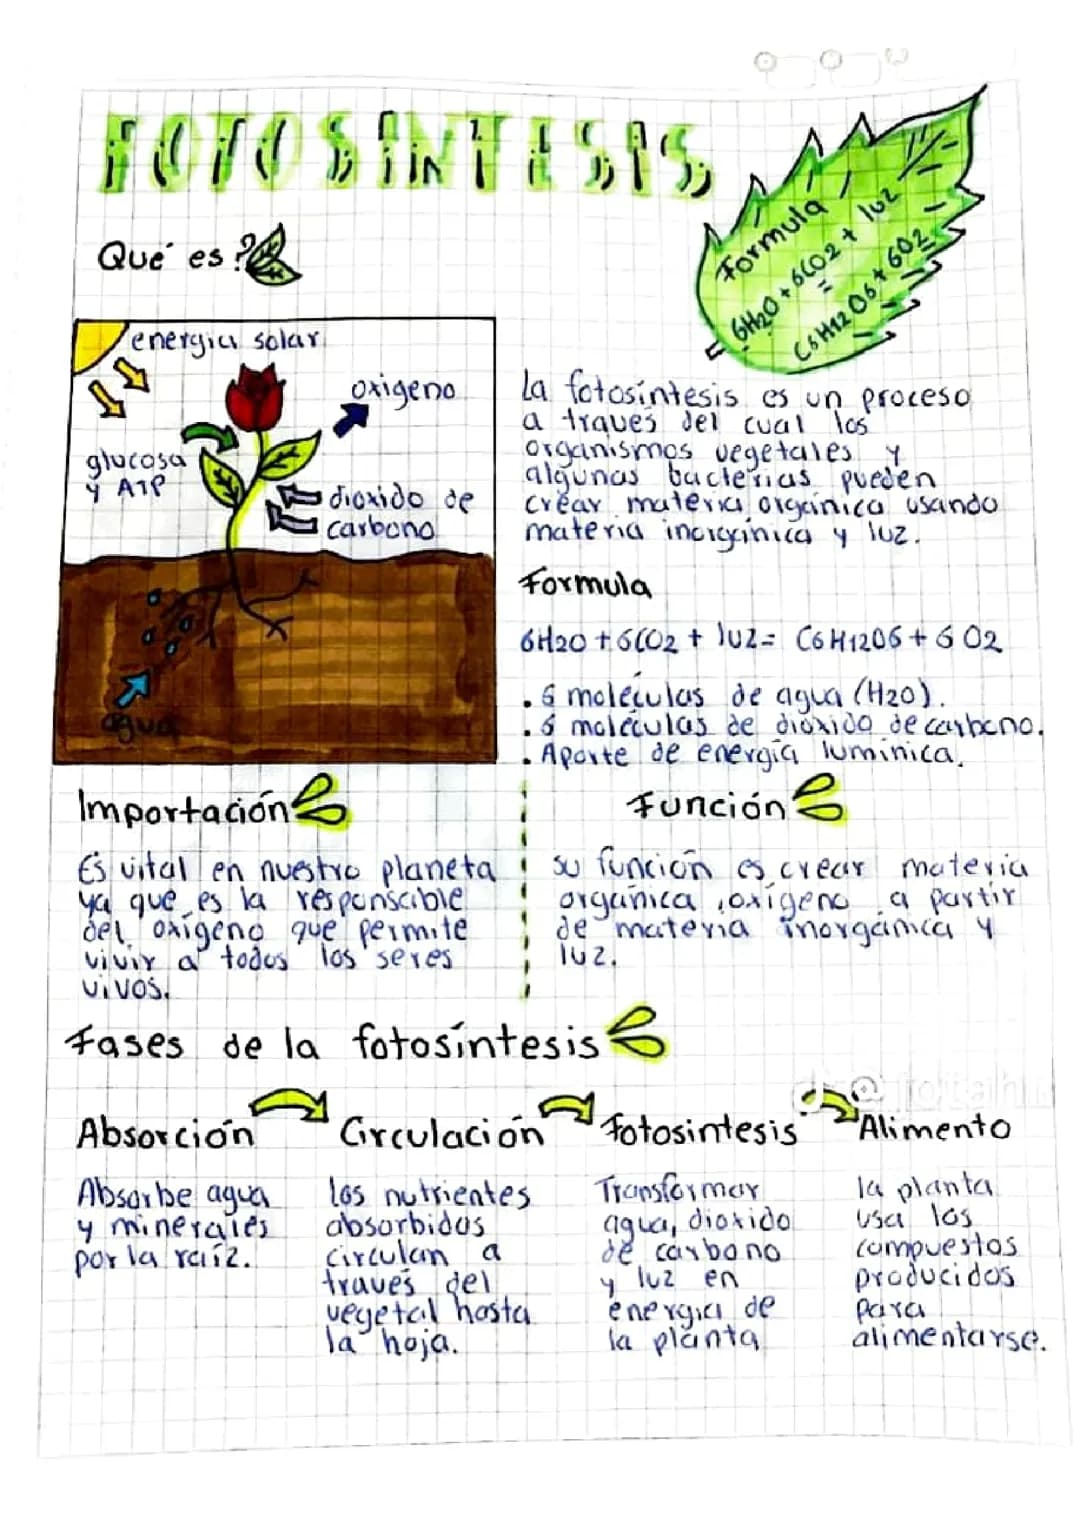 FOTOSINTESIS
Qué es?
Formula
6H2O + 6CO2 + luz
=
C6H12O6 + 6O2
energia solar
oxigeno
glucosa
y ATP
dioxido de
carbono
agua
La fotosíntesis es un proceso
a traves del cual los
organismos vegetales y
algunas bacterias pueden
crear materia orgánica usando
materia inorgánica y luz.
Formula
6H2O + 6CO2 + luz = C6H12O6 + 6 O2
. 6 moléculas de agua (H2O).
. 6 moléculas de dióxido de carbono.
. Aporte de energía lumínica.
Importación
Es vital en nuestro planeta
ya que es la responsable
del oxígeno que permite
vivir a todos los seres
vivos.
Función
su función es crear materia
orgánica, oxígeno a partir
de materia inorgánica y
luz.
Fases de la fotosíntesis
Absorción
Absorbe agua
y minerales
por la raíz.
Circulación
los nutrientes
absorbidos
circulan a
través del
vegetal hasta
la hoja.
Fotosintesis
Transformar
agua, dioxido
de carbono
y luz en
energia de
la planta
Alimento
la planta
usa los
compuestos
producidos
para
alimentarse.